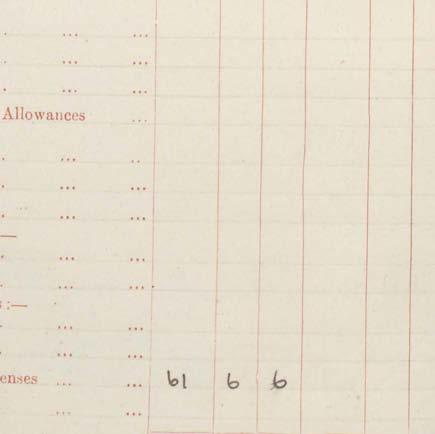 . ... ...
. ... ...
. ... ...
Allowances ...
. ... ..
. ... ...
. ... ...
—
. ... ...
. ... ...
s :—
. ... ...
. ... ...
enses ... ... 61 6 6
... ...